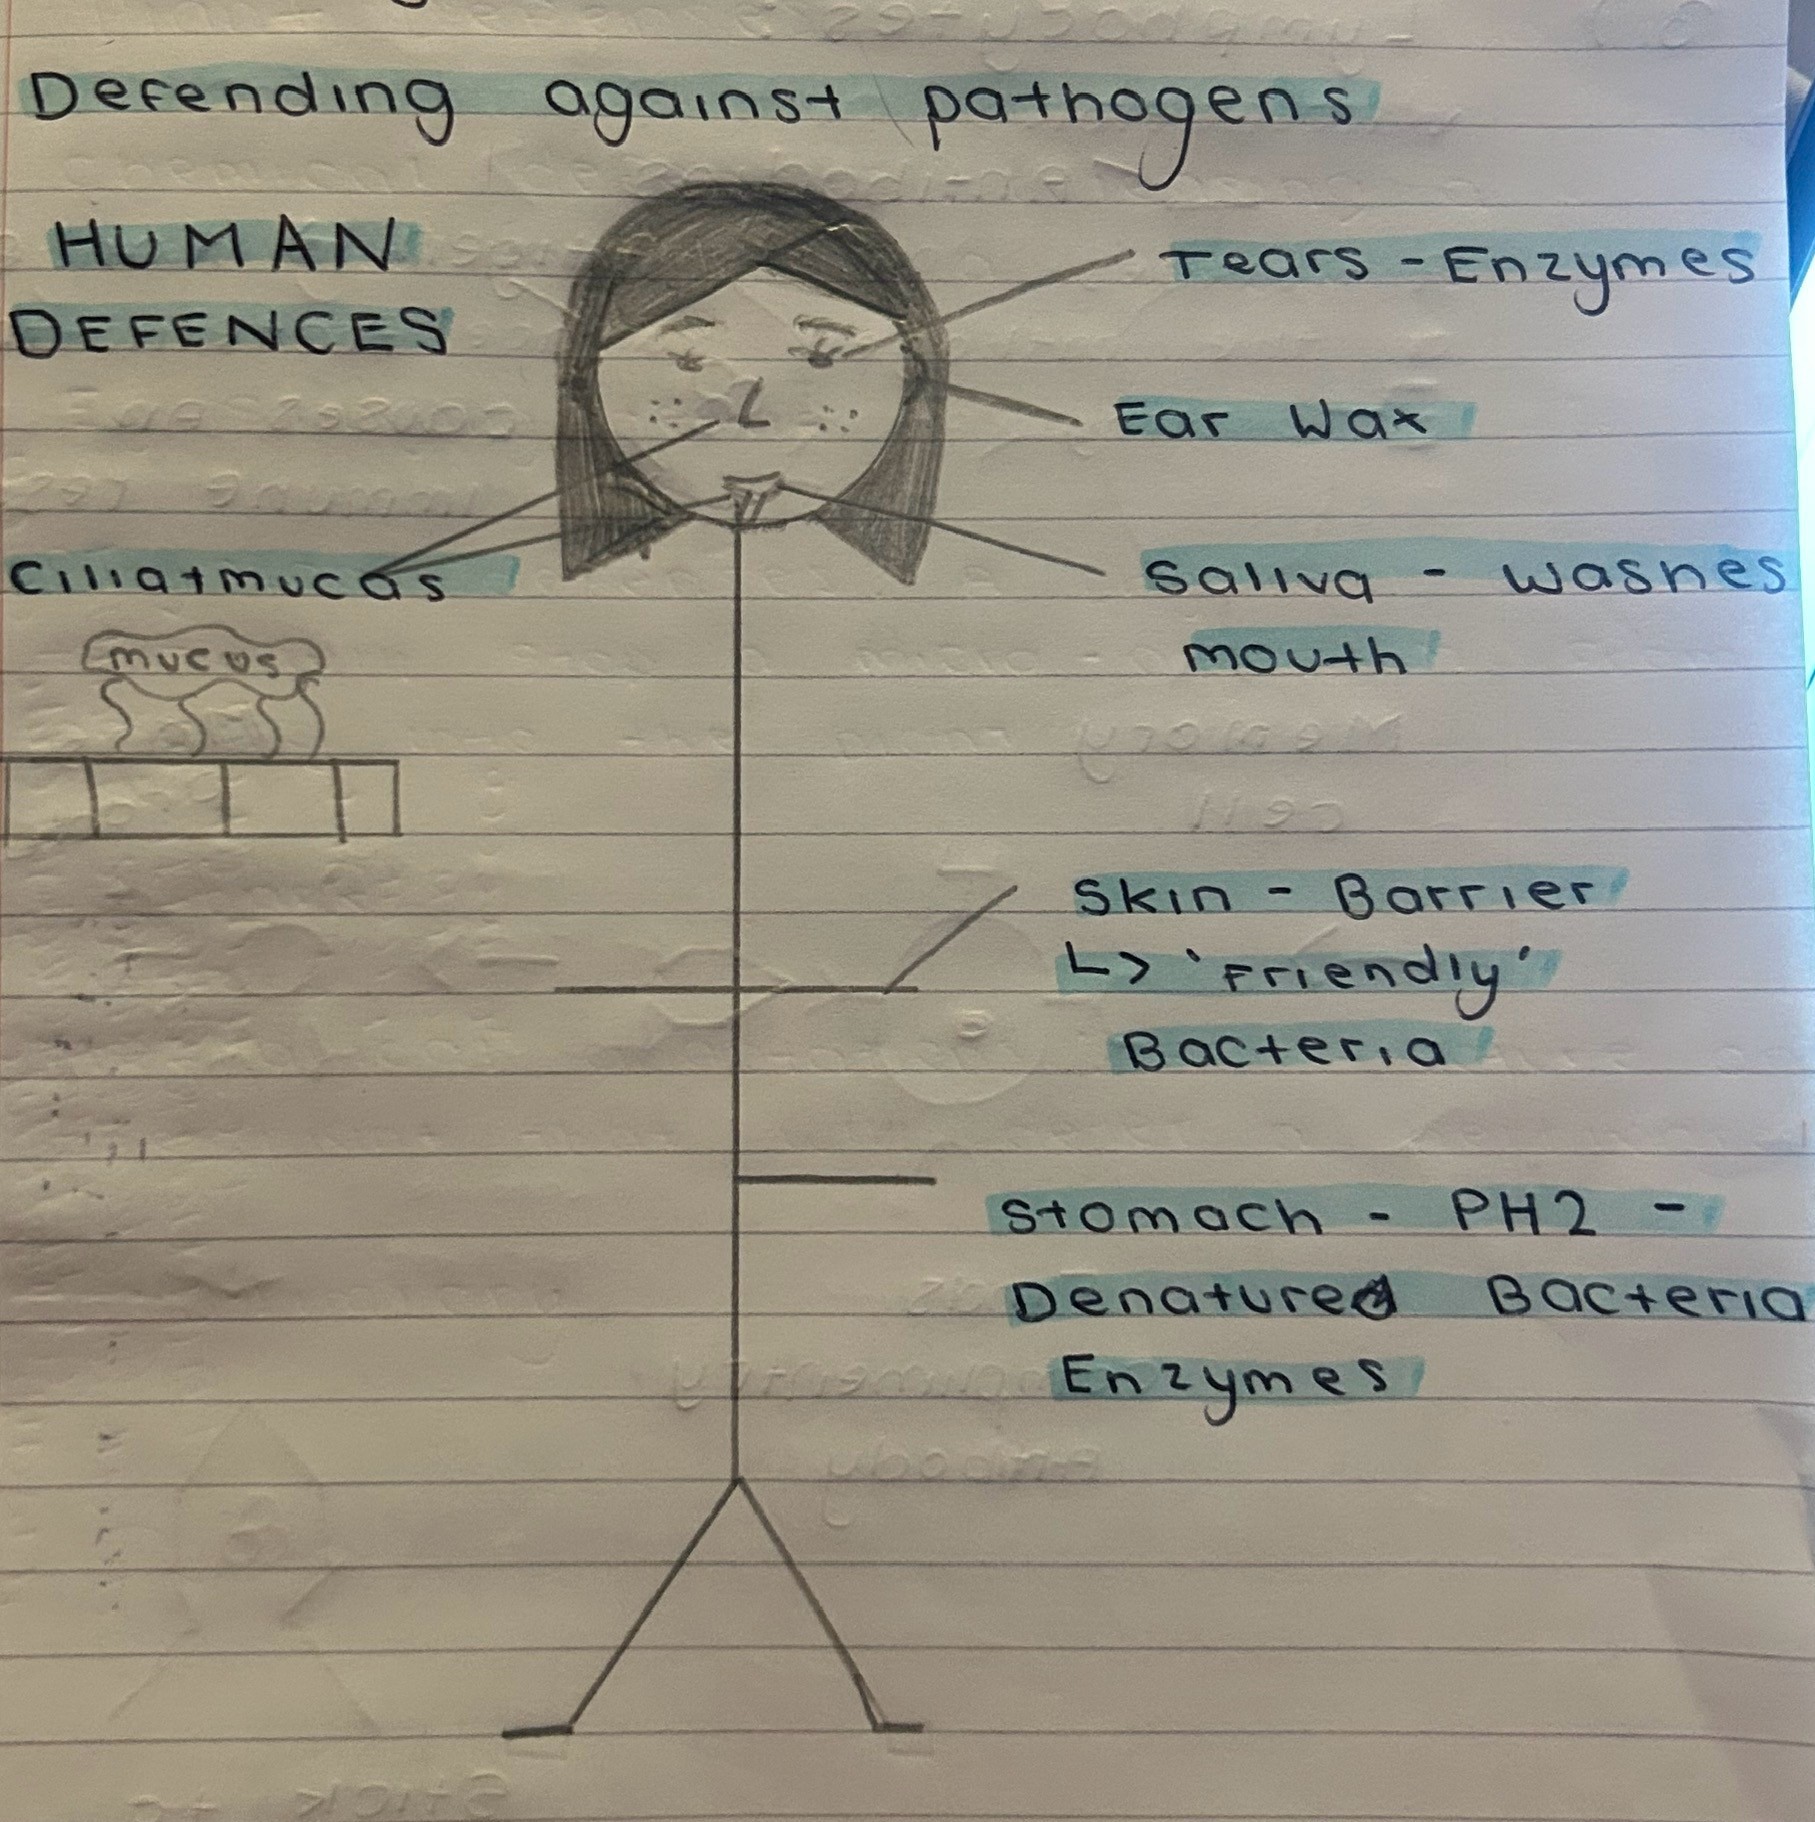 Defending against pathogens
HUMAN
DEFENCES
Tears - Enzymes
Ear Wax
Cilia+mucas
mucus
Saliva - washes
mouth
Skin - Barrier
↳ 'Friendly'
Bacteria
Stomach - PH2 -
Denatured Bacteria
Enzymes